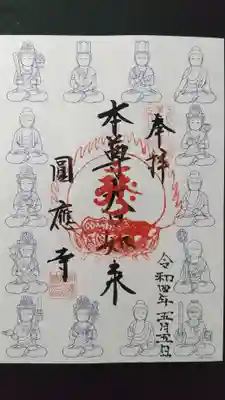 奉拝
令和四年 五月五日
本尊大日如来
圓應寺